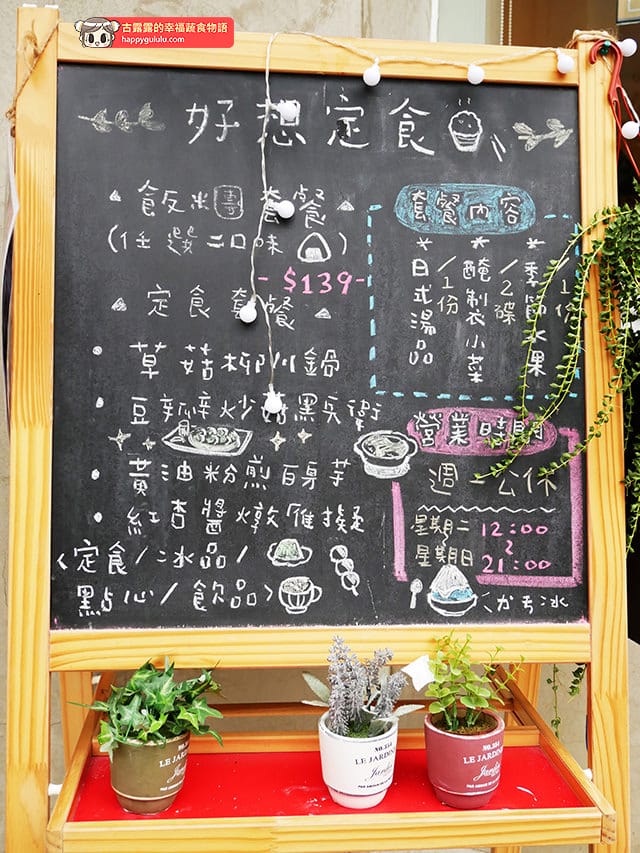 古露露的幸福蔬食物語
happygululu.com
好想定食
飯米團套餐
(任選二口味)
-$139-
定食套餐
草菇柳川鍋
黃油粉煎百身芋
紅杏醬燉雁擬
〈定食/冰品/
點心/飲品〉
套餐內容
*日式湯品/1份
*醃制衣小菜/2碟
*季節水果/1份
營業時間
週一公休
星期二
~
星期日
12:00
~
21:00
NO.354
LE JARDIN
NO.354
LE JARDIN